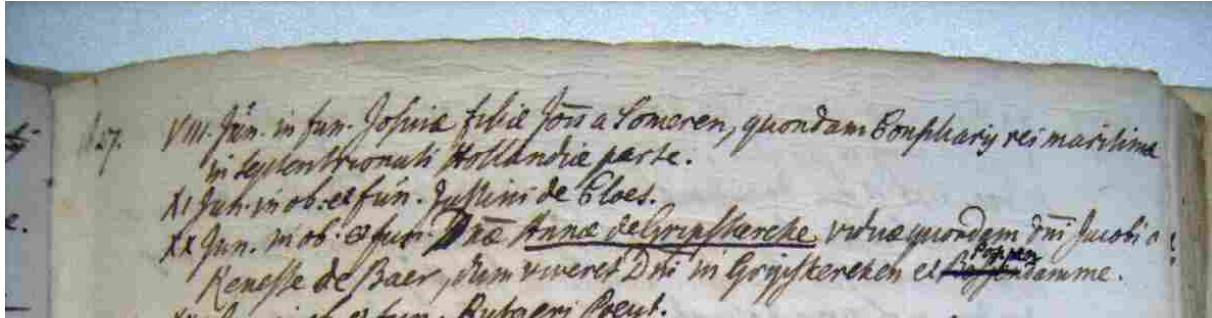 1627. VIII. Jun. in fun. Josinæ filiæ Jõis a Someren, quondam Consiliarij rei maritimæ
in septentrionali Hollandiæ parte.
XI Jun. in ob. et fun. Justini de Cloet.
XX Jun. in ob. et fun. Dnæ Annæ de Gripskercke viduæ quondam dni Jacobi a
Renesse de Baer, dum viveret Dni in Grijpskercken et Poppendamme.
in ob et fun. Rutgeri